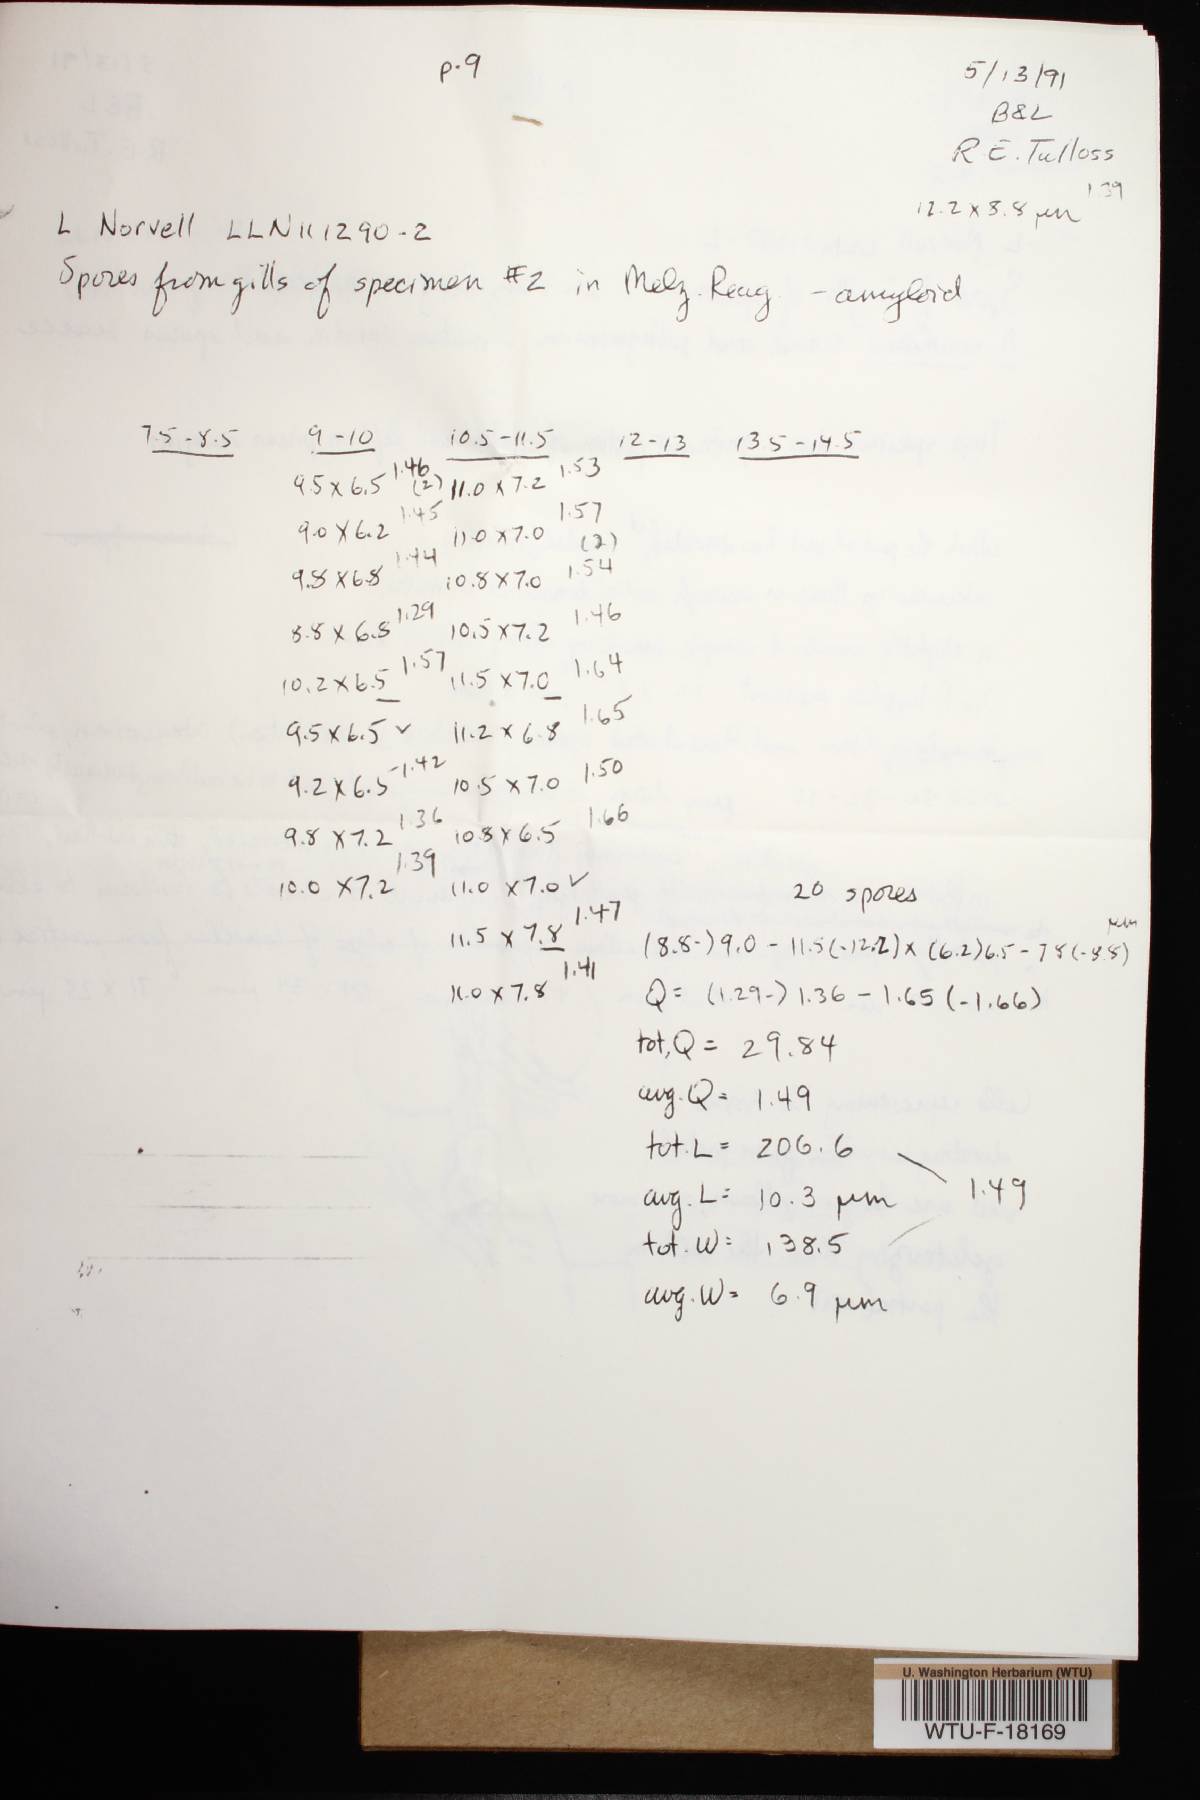 p.9
5/13/91
B&L
R.E. Tulloss
12.2 x 8.8 µm 1.39
L Norvell LLN111290-2
Spores from gills of specimen #2 in Melz. Reag. - amyloid
7.5-8.5 9-10 10.5-11.5 12-13 13.5-14.5
9.5 x 6.5 1.46 (2) 11.0 x 7.2 1.53
9.0 x 6.2 1.45 11.0 x 7.0 1.57 (2)
9.8 x 6.8 1.44 10.8 x 7.0 1.54
8.8 x 6.8 1.29 10.5 x 7.2 1.46
10.2 x 6.5 1.57 11.5 x 7.0 1.64
9.5 x 6.5 ✓ 11.2 x 6.8 1.65
9.2 x 6.5 -1.42 10.5 x 7.0 1.50
9.8 x 7.2 1.36 10.8 x 6.5 1.66
10.0 x 7.2 1.39 11.0 x 7.0 ✓
11.5 x 7.8 1.47
11.0 x 7.8 1.41
20 spores
(8.8-) 9.0 - 11.5 (-12.2) x (6.2) 6.5 - 7.8 (-8.8) µm
Q = (1.29-) 1.36 - 1.65 (-1.66)
tot. Q = 29.84
avg. Q = 1.49
tot. L = 206.6
avg. L = 10.3 µm 1.49
tot. W = 138.5
avg. W = 6.9 µm
U. Washington Herbarium (WTU)
WTU-F-18169